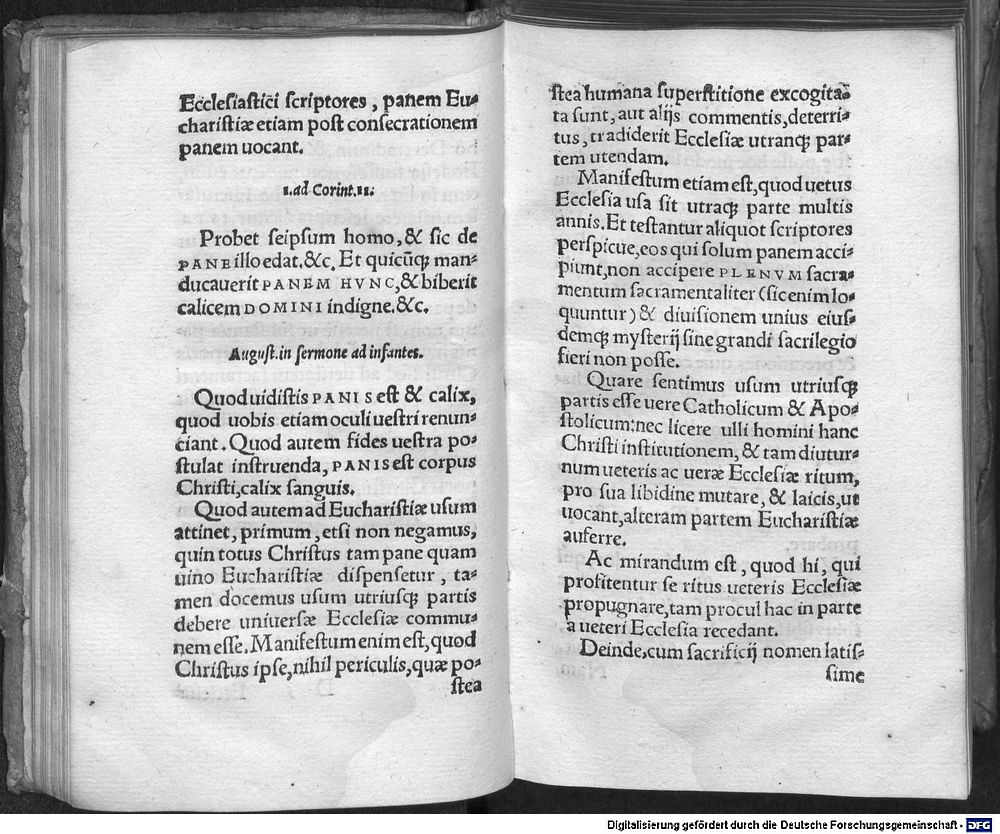 Ecclesiastici scriptores, panem Eu-
charistiæ etiam post consecrationem
panem uocant.
1. ad Corint. 11.
Probet seipsum homo, & sic de
PANE illo edat. &c. Et quicūq; man-
ducauerit PANEM HVNC, & biberit
calicem DOMINI indigne. &c.
August. in sermone ad infantes.
Quod uidistis PANIS est & calix,
quod uobis etiam oculi uestri renun-
ciant. Quod autem fides uestra po-
stulat instruenda, PANIS est corpus
Christi, calix sanguis.
Quod autem ad Eucharistiæ usum
attinet, primum, etsi non negamus,
quin totus Christus tam pane quam
uino Eucharistiæ dispensetur, ta-
men docemus usum utriusq; partis
debere uniuersæ Ecclesiæ commu-
nem esse. Manifestum enim est, quod
Christus ipse, nihil periculis, quæ po-
stea
stea humana superstitione excogita-
ta sunt, aut alijs commentis, deterri-
tus, tradiderit Ecclesiæ utranq; par-
tem utendam.
Manifestum etiam est, quod uetus
Ecclesia usa sit utraq; parte multis
annis. Et testantur aliquot scriptores
perspicue, eos qui solum panem acci-
piunt, non accipere PLENVM sacra-
mentum sacramentaliter (sic enim lo-
quuntur) & diuisionem unius eius-
demq; mysterij sine grandi sacrilegio
fieri non posse.
Quare sentimus usum utriusq;
partis esse uere Catholicum & Apo-
stolicum: nec licere ulli homini hanc
Christi institutionem, & tam diutur-
num ueteris ac ueræ Ecclesiæ ritum,
pro sua libidine mutare, & laicis, ut
uocant, alteram partem Eucharistiæ
auferre.
Ac mirandum est, quod hi, qui
profitentur se ritus ueteris Ecclesiæ
propugnare, tam procul hac in parte
a ueteri Ecclesia recedant.
Deinde, cum sacrificij nomen latis-
sime
Digitalisierung gefördert durch die Deutsche Forschungsgemeinschaft - DFG